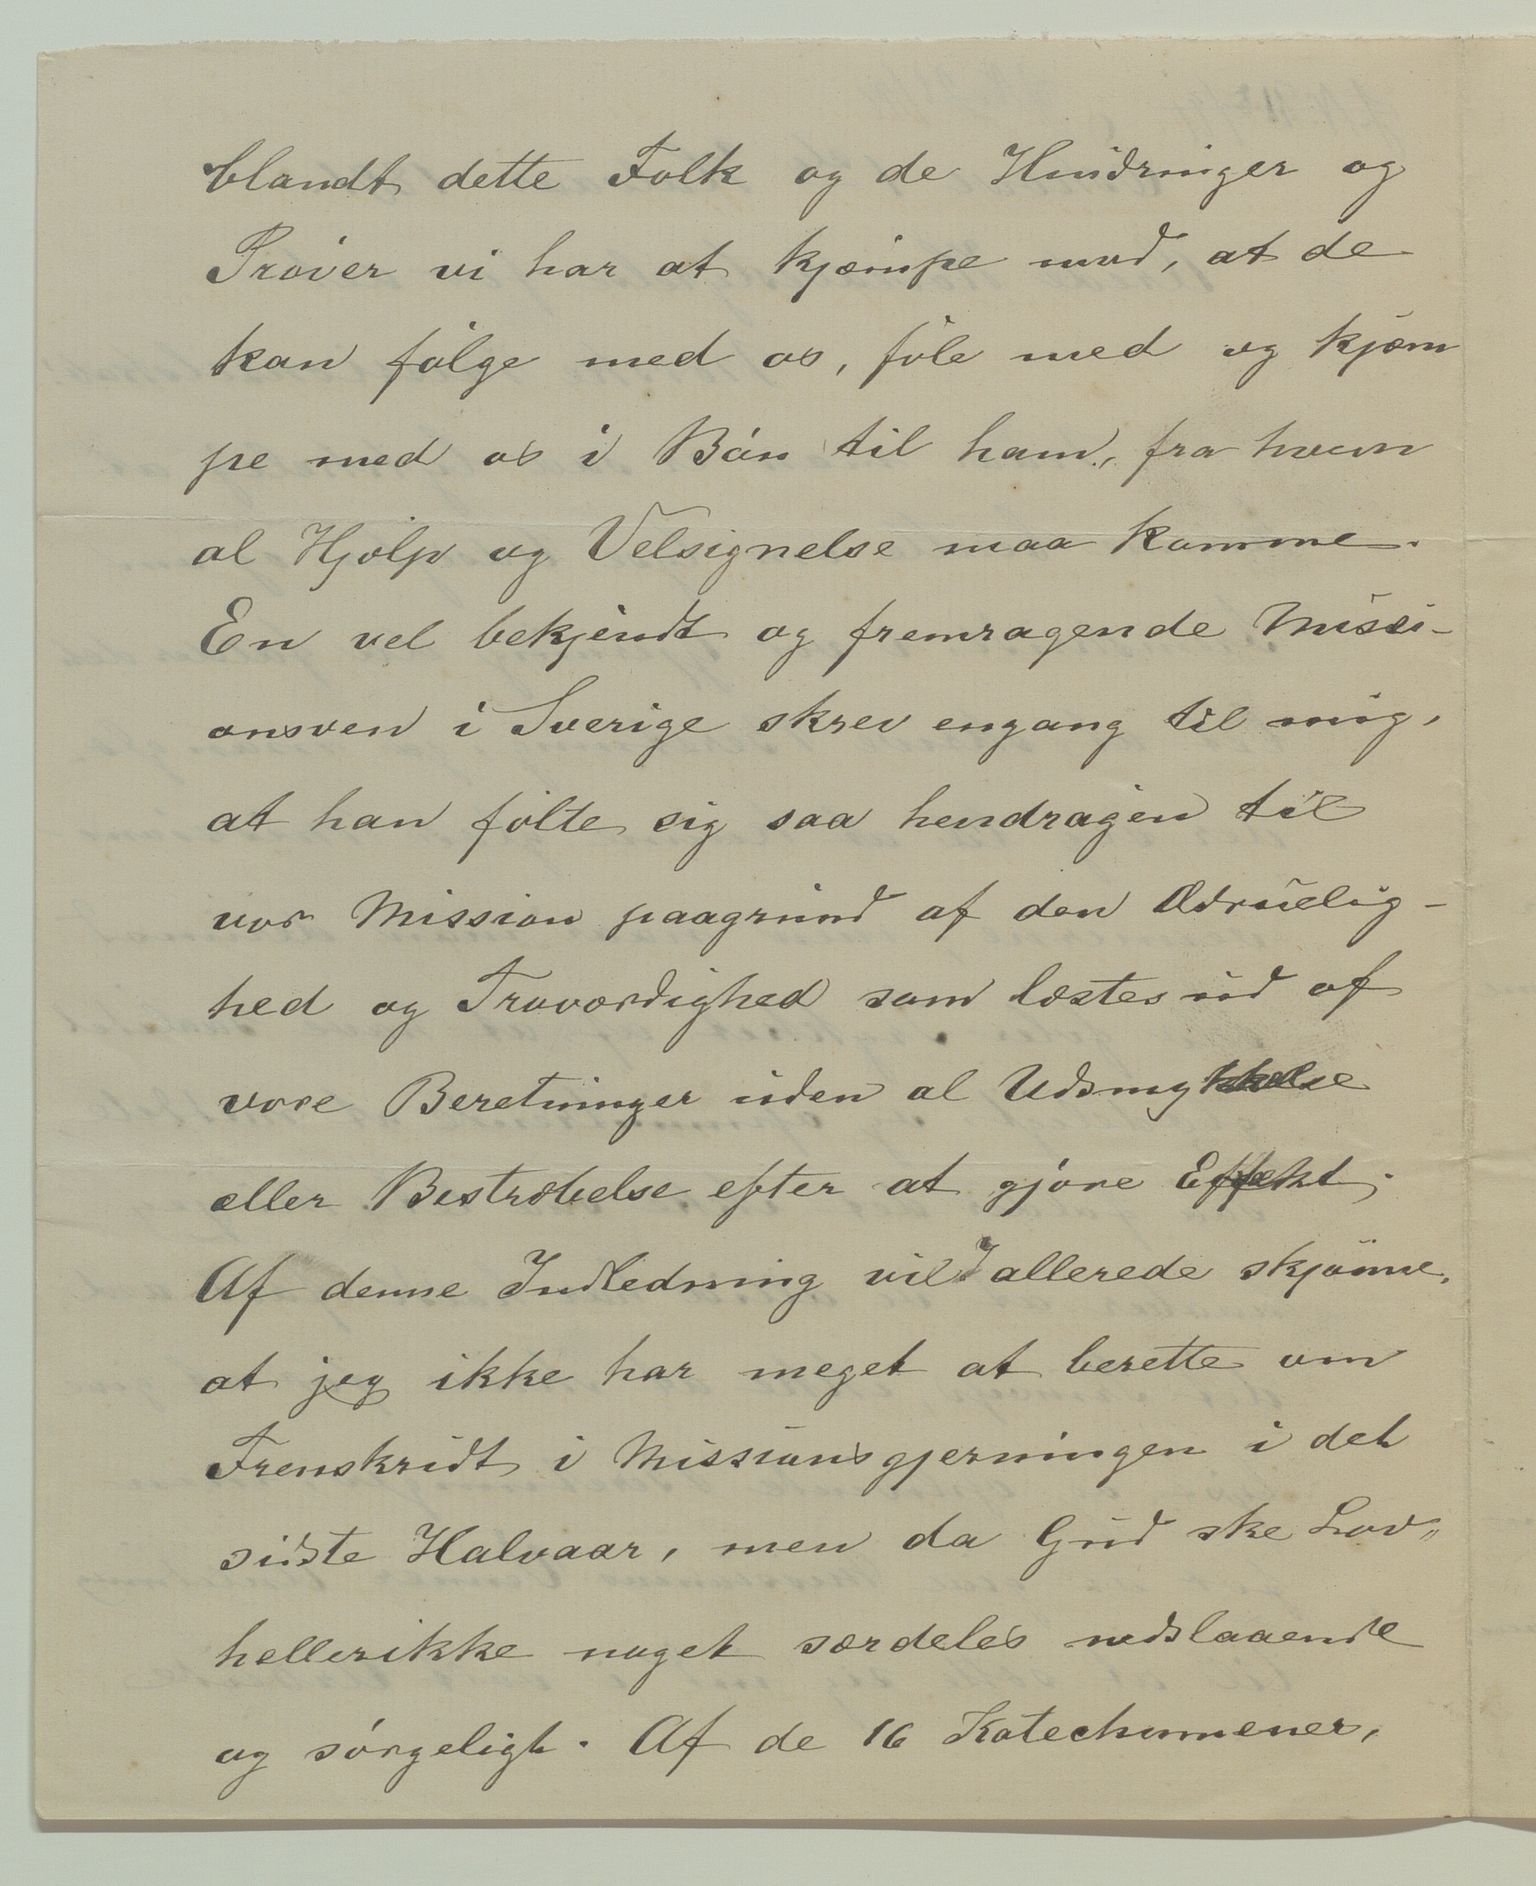 blandt dette Folk og de Hindringer og
Prøver vi har at kjæmpe mod, at de
kan følge med os, føle med og kjæm
pe med os i Bøn til ham, fra hvem
al Hjælp og Velsignelse maa komme.
En vel bekjendt og fremragende Missi-
onsven i Sverige skrev engang til mig,
at han følte sig saa hendragen til
vor Mission paagrund af den Ædruelig-
hed og Troværdighed som læstes ud af
vore Beretninger uden al Udsmykkelse
eller Bestræbelse efter at gjøre Effekt.
Af denne Indledning vil I allerede skjønne,
at jeg ikke har meget at berette om
Fremskridt i Missionsgjerningen i det
sidste Halvaar, men da Gud ske Lov"
hellerikke noget særdeles nedslaaende
og sørgeligt. Af de 16 Katechumener,